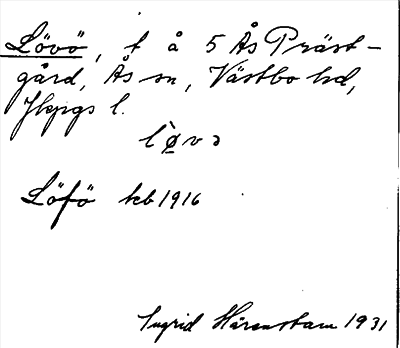 Lövö, t å 5 Ås Präst-
gård, Ås sn, Västbo hd,
Jkpgs l.
l`øvɔ
Löfö kb 1916
Ingrid Härenstam 1931